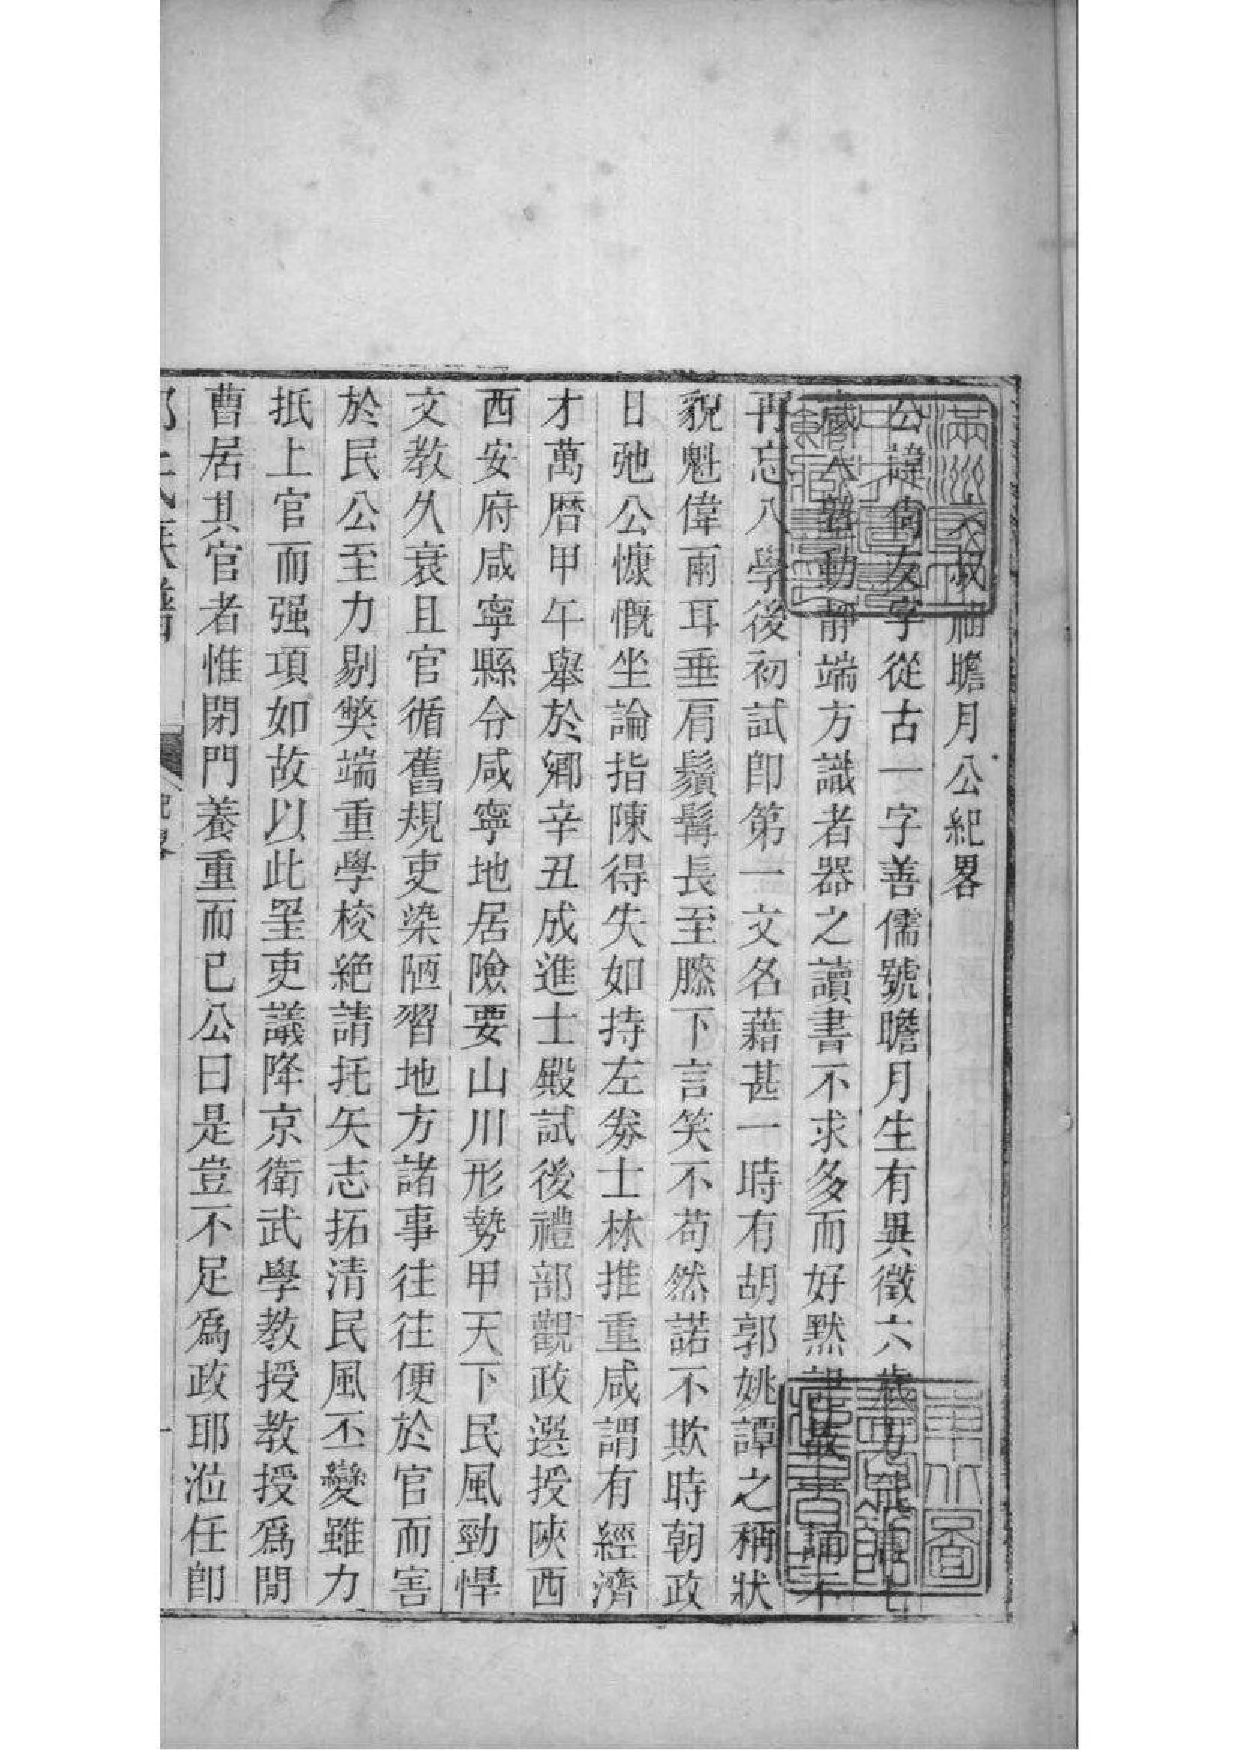 叔祖瞻月公紀畧
公諱尙友字從古一字善儒號瞻月生有異徵六歲方能語七
歲入塾動靜端方識者器之讀書不求多而好默記故誦不
再忘入學後初試卽第一文名藉甚一時有胡郭姚譚之稱狀
貌魁偉兩耳垂肩鬚髯長至膝下言笑不苟然諾不欺時朝政
日弛公慷慨坐論指陳得失如持左券士林推重咸謂有經濟
才萬暦甲午舉於鄉辛丑成進士殿試後禮部觀政選授陝西
西安府咸寧縣令咸寧地居險要山川形勢甲天下民風勁悍
文教久衰且官循舊規吏染陋習地方諸事往往便於官而害
於民公至力剔獘端重學校絕請托矢志拓清民風丕變雖力
抵上官而强項如故以此罣吏議降京衛武學教授教授爲閒
曹居其官者惟閉門養重而已公曰是豈不足爲政耶涖任卽